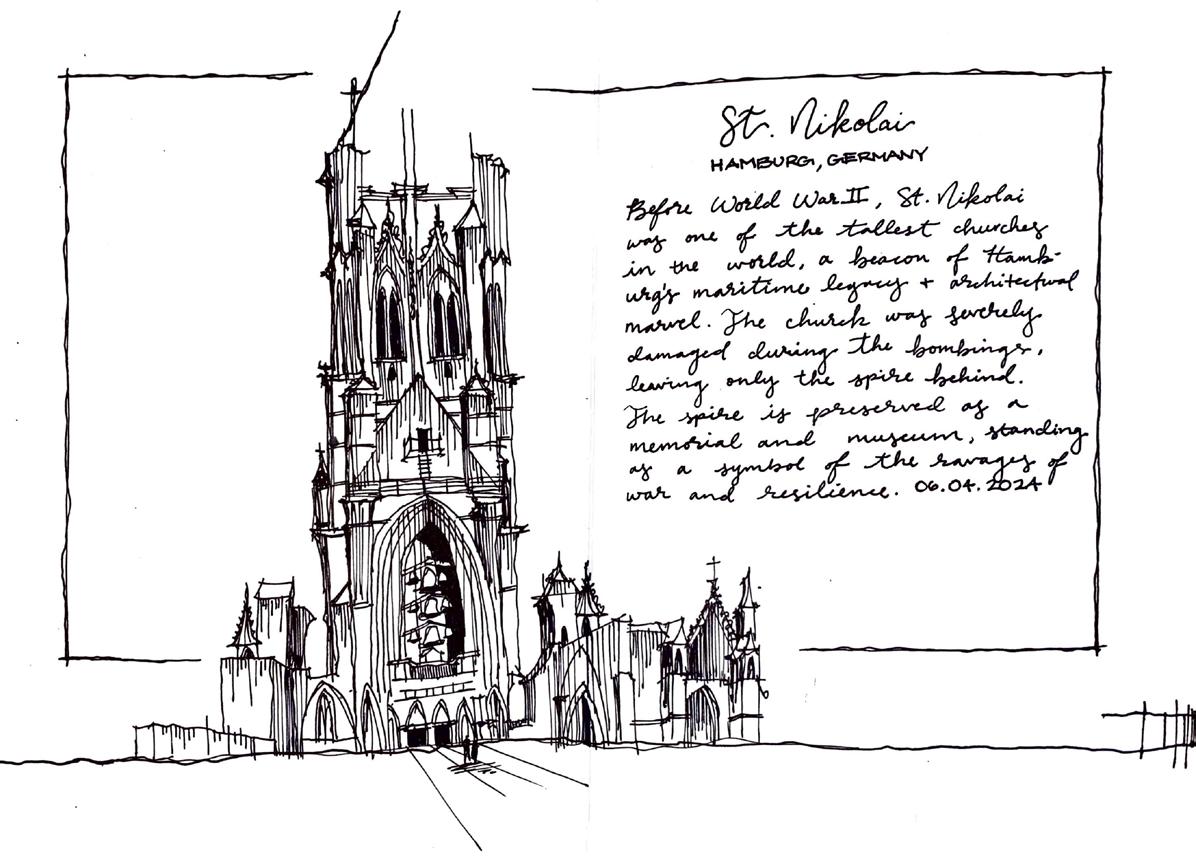 St. Nikolai
HAMBURG, GERMANY
Before World War II, St. Nikolai
was one of the tallest churches
in the world, a beacon of Hamb-
urg's maritime legacy + architectural
marvel. The church was severely
damaged during the bombings,
leaving only the spire behind.
The spire is preserved as a
memorial and museum, standing
as a symbol of the ravages of
war and resilience. 06.04.2024